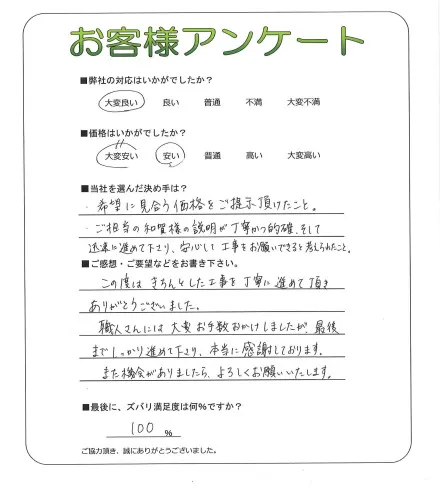 お客様アンケート
■弊社の対応はいかがでしたか?
大変良い 良い 普通 不満 大変不満
■価格はいかがでしたか?
大変安い 安い 普通 高い 大変高い
■当社を選んだ決め手は?
・希望に見合う価格をご提示頂けたこと。
・ご担当の和賀様の説明が丁寧かつ的確、そして
迅速に進めて下さり、安心して工事をお願いできると考えられたこと。
■ご感想・ご要望などをお書き下さい。
この度は きちんとした工事を丁寧に進めて頂き
ありがとうございました。
職人さんには大変お手数おかけしましたが、最後
までしっかり進めて下さり、本当に感謝しております。
また機会がありましたら、よろしくお願いいたします。
■最後に、ズバリ満足度は何%ですか?
100 %
ご協力頂き、誠にありがとうございました。